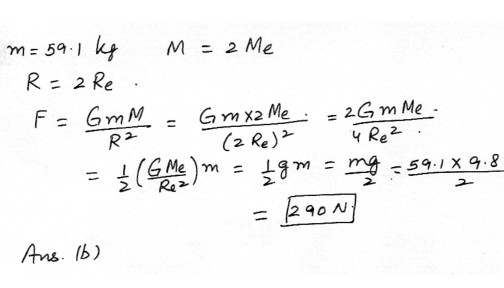 m = 59.1 kg M = 2 Me
R = 2 Re .
F = GmM / R² = Gm x 2 Me / (2 Re)² = 2GmMe / 4 Re² .
= 1/2 (GMe / Re²) m = 1/2 g m = mg / 2 = 59.1 x 9.8 / 2
= 290 N
Ans. (b)